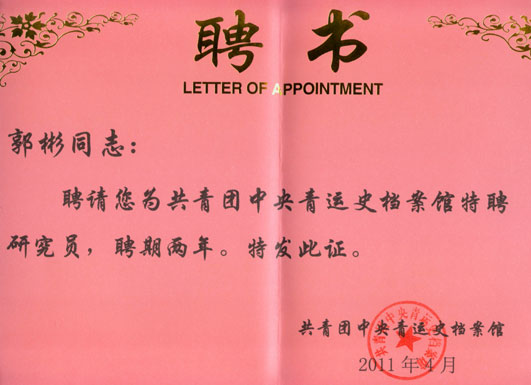 聘书
LETTER OF APPOINTMENT
郭彬同志：
聘请您为共青团中央青运史档案馆特聘
研究员，聘期两年。特发此证。
共青团中央青运史档案馆
2011年4月